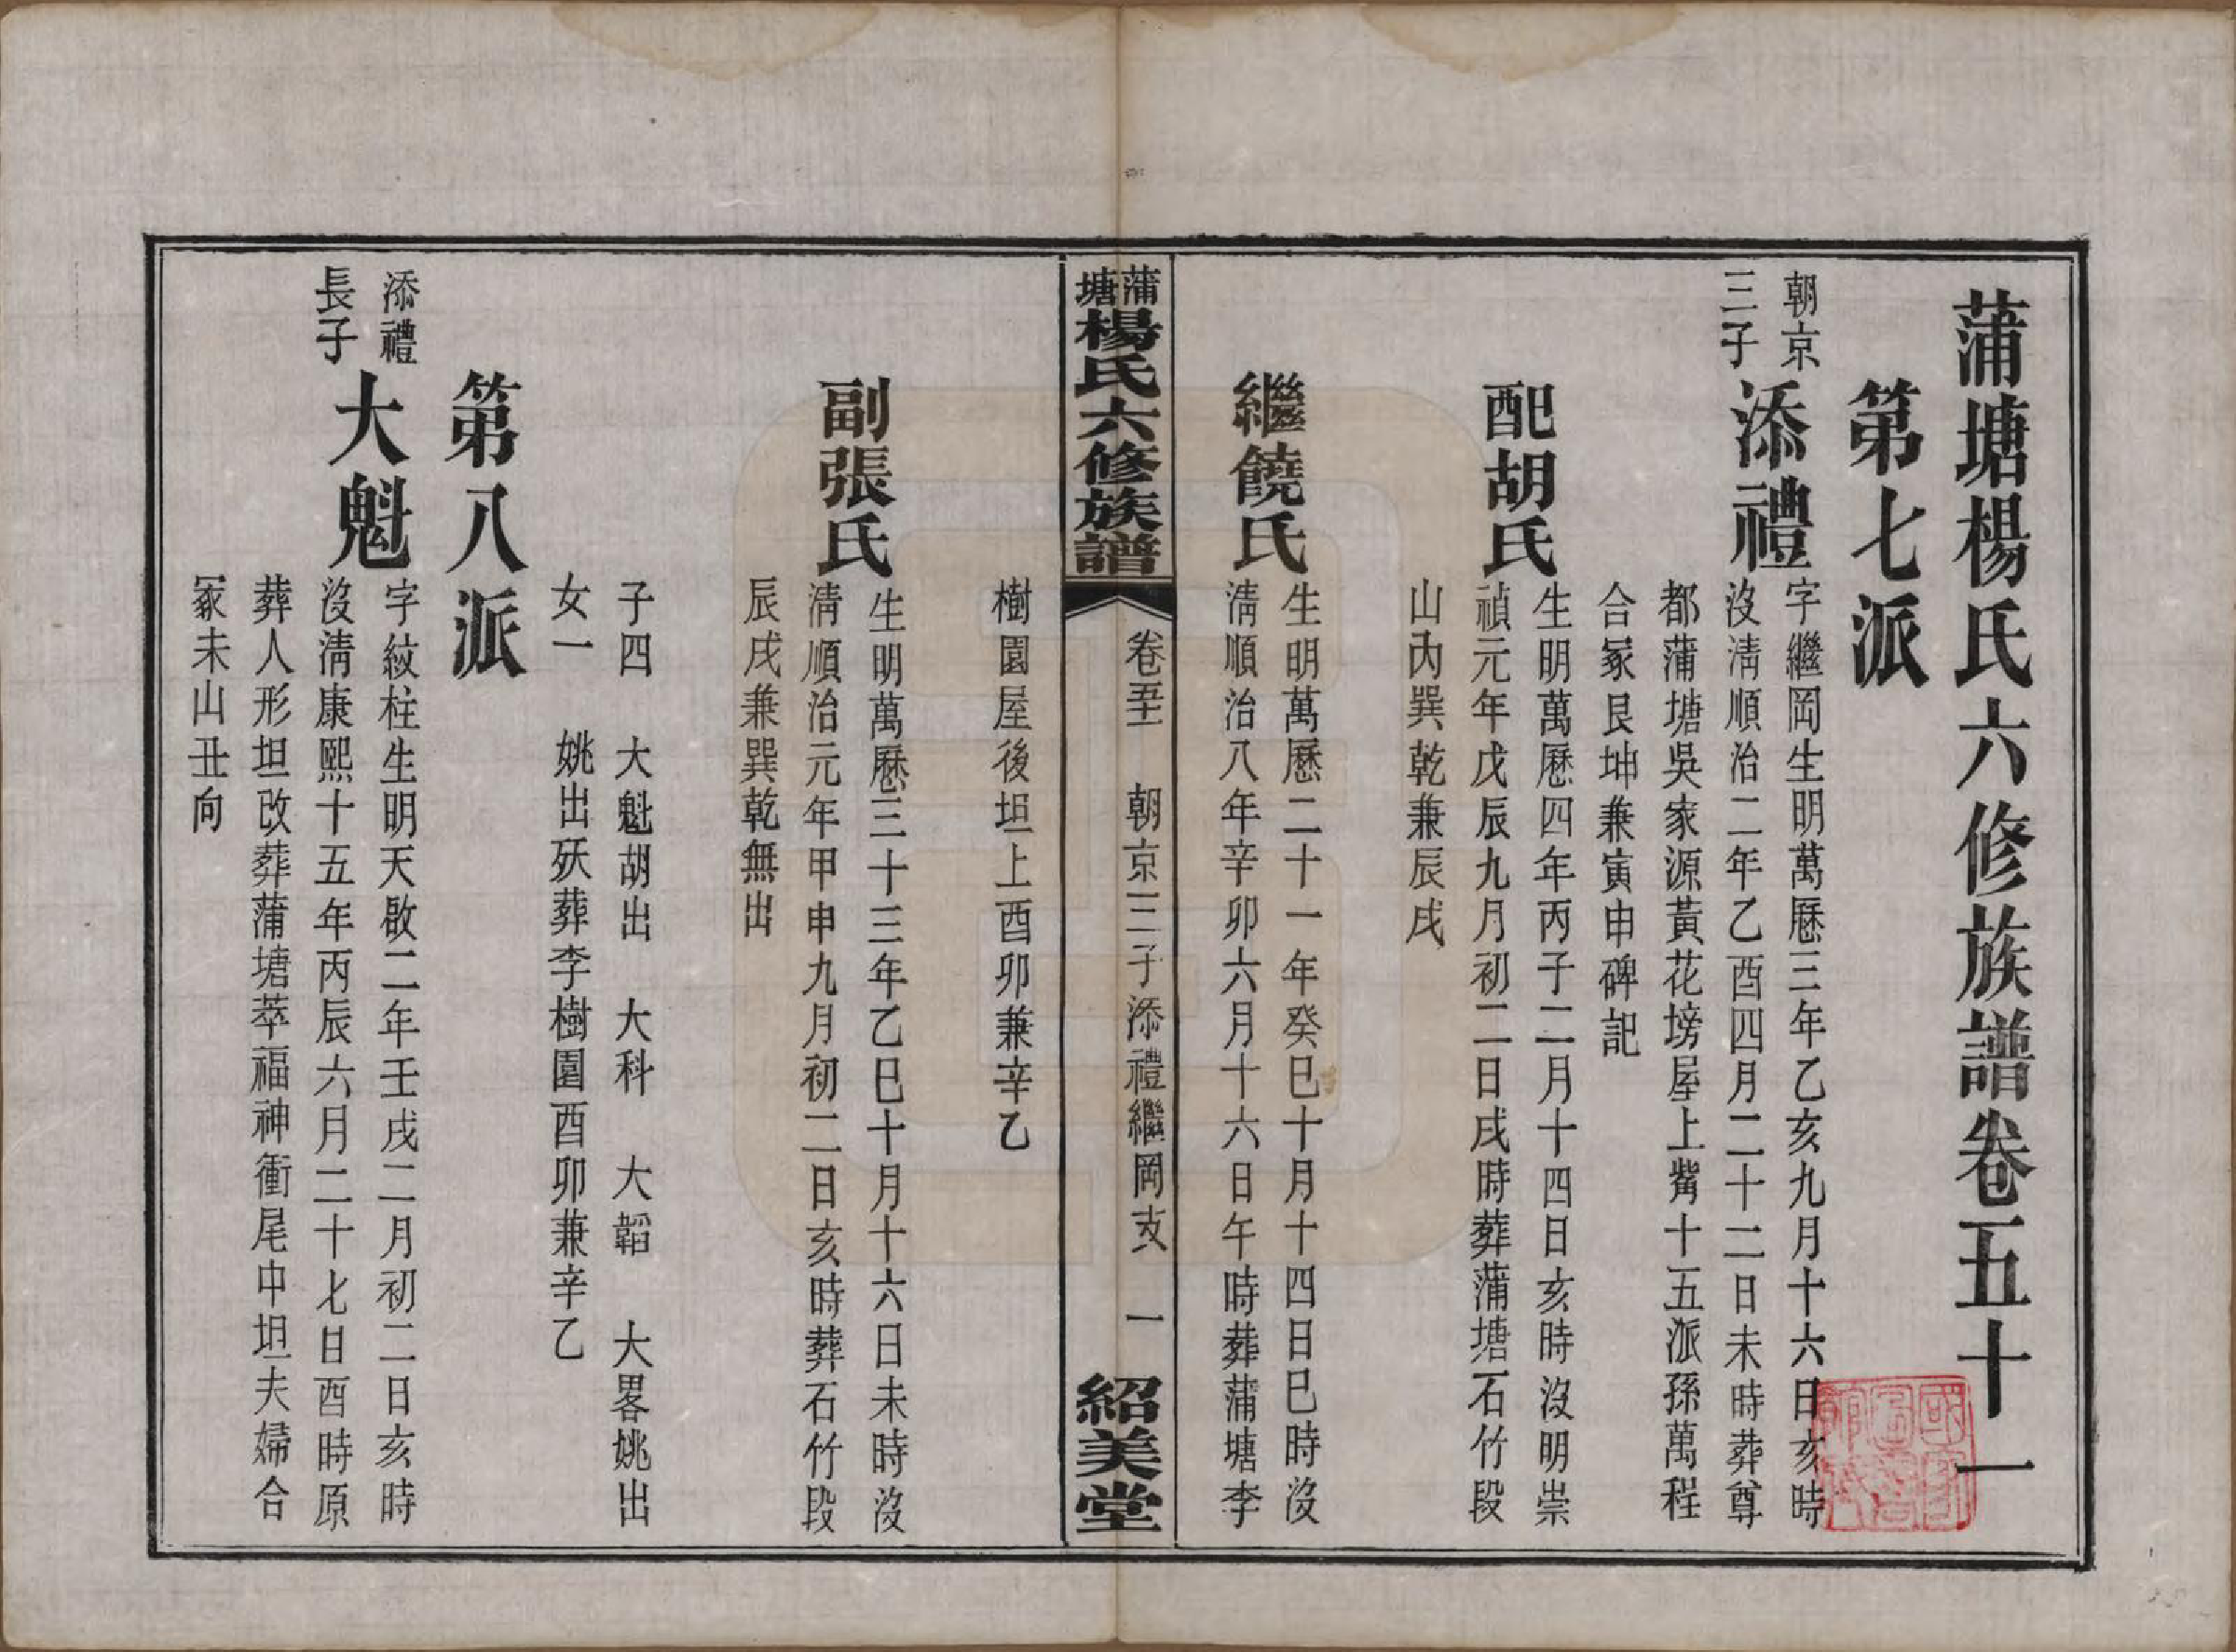 蒲塘楊氏六修族譜卷五十一
第七派
朝京
三子
添禮
字繼岡生明萬厯三年乙亥九月十六日亥時
沒淸順治二年乙酉四月二十二日未時葬尊
都蒲塘吳家源黃花塝屋上觜十五派孫萬程
合冢艮坤兼寅申碑記
配胡氏
生明萬厯四年丙子二月十四日亥時沒明崇
禎元年戊辰九月初二日戌時葬蒲塘石竹段
山內巽乾兼辰戌
繼饒氏
生明萬厯二十一年癸巳十月十四日巳時沒
淸順治八年辛卯六月十六日午時葬蒲塘李
蒲塘楊氏六修族譜
卷五十一
朝京三子添禮繼岡支
一
紹美堂
樹園屋後坦上酉卯兼辛乙
副張氏
生明萬厯三十三年乙巳十月十六日未時沒
淸順治元年甲申九月初二日亥時葬石竹段
辰戌兼巽乾無出
子四 大魁胡出 大科 大韜 大畧姚出
女一 姚出殀葬李樹園酉卯兼辛乙
第八派
添禮
長子
大魁
字紋柱生明天啟二年壬戌二月初二日亥時
沒淸康熙十五年丙辰六月二十七日酉時原
葬人形坦改葬蒲塘萃福神衝尾中坦夫婦合
冢未山丑向